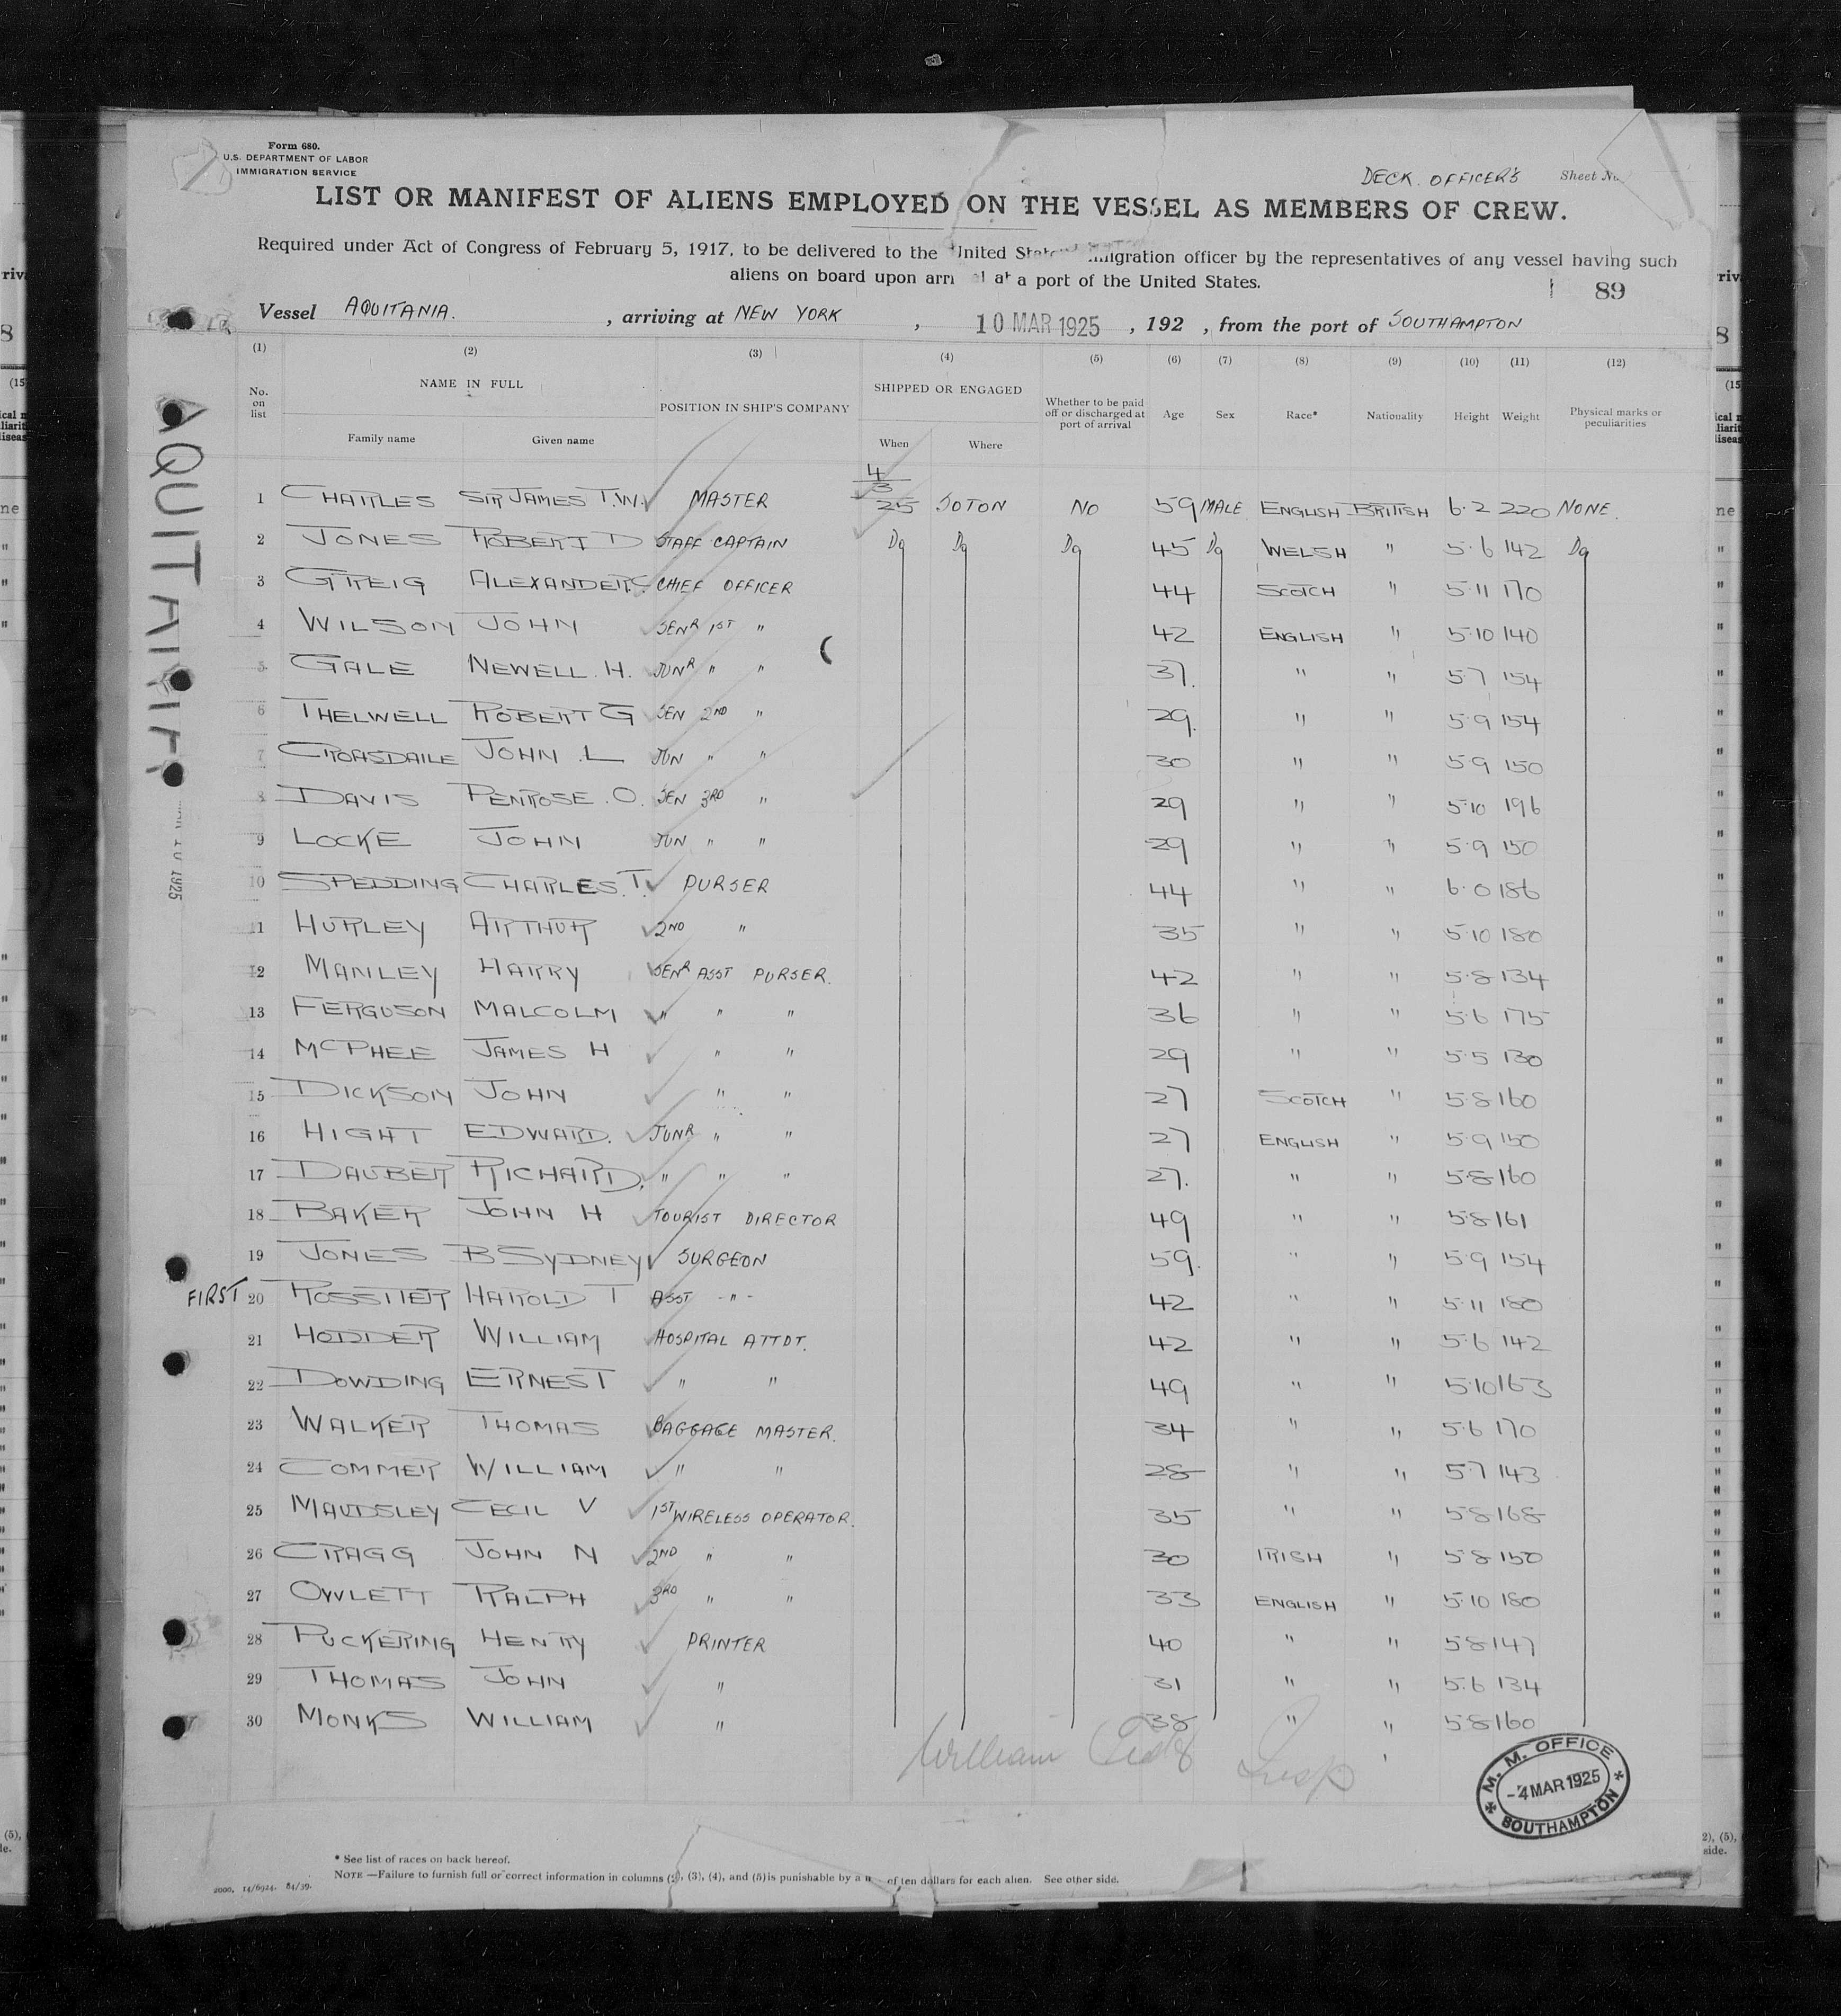 Form 680.
U.S. DEPARTMENT OF LABOR
IMMIGRATION SERVICE
DECK. OFFICER'S Sheet No.
LIST OR MANIFEST OF ALIENS EMPLOYED ON THE VESSEL AS MEMBERS OF CREW.
Required under Act of Congress of February 5, 1917, to be delivered to the United States Immigration officer by the representatives of any vessel having such
aliens on board upon arrival at a port of the United States.
89
Vessel AQUITANIA. , arriving at NEW YORK , 10 MAR 1925 , 192 , from the port of SOUTHAMPTON
(1) (2) (3) (4) (5) (6) (7) (8) (9) (10) (11) (12)
No. on list NAME IN FULL Family name Given name POSITION IN SHIP'S COMPANY SHIPPED OR ENGAGED When Where Whether to be paid off or discharged at port of arrival Age Sex Race* Nationality Height Weight Physical marks or peculiarities
1 CHARLES SIR JAMES T.W. MASTER 4/3/25 SOTON NO 59 MALE ENGLISH BRITISH 6.2 220 NONE.
2 JONES ROBERT D STAFF CAPTAIN Do Do Do 45 Do WELSH " 5.6 142 Do
3 GREIG ALEXANDER C CHIEF OFFICER 44 SCOTCH " 5.11 170
4 WILSON JOHN SENR 1ST " 42 ENGLISH " 5.10 140
5 GALE NEWELL. H. JUNR " " 37. " " 5.7 154
6 THELWELL ROBERT G SEN 2ND " 29. " " 5.9 154
7 CROASDAILE JOHN .L JUN " " 30 " " 5.9 150
8 DAVIS PENROSE .O. SEN 3RD " 29 " " 5.10 196
9 LOCKE JOHN JUN " " 29 " " 5.9 150
10 SPEDDING CHARLES.T. PURSER 44 " " 6.0 186
11 HURLEY ARTHUR 2ND " 35 " " 5.10 180
12 MANLEY HARRY SENR ASST PURSER. 42 " " 5.8 134
13 FERGUSON MALCOLM " " " 36 " " 5.6 175
14 McPHEE JAMES H " " 29 " " 5.5 130
15 DICKSON JOHN " " 27 SCOTCH " 5.8 160
16 HIGHT EDWARD. JUNR " " 27 ENGLISH " 5.9 150
17 DAUBER RICHARD. " " " 27. " " 5.8 160
18 BAKER JOHN H TOURIST DIRECTOR 49 " " 5.8 161
19 JONES B SYDNEY SURGEON 59. " " 5.9 154
FIRST 20 HAROLD T ASST -"- 42 " " 5.11 180
21 HODDER WILLIAM HOSPITAL ATTDT. 42 " " 5.6 142
22 DOWDING ERNEST " " 49 " " 5.10 163
23 WALKER THOMAS BAGGAGE MASTER. 34 " " 5.6 170
24 COMMER WILLIAM " " 28 " " 5.7 143
25 MAUDSLEY CECIL V 1ST WIRELESS OPERATOR. 35 " " 5.8 168
26 CRAGG JOHN N 2ND " " 30 IRISH " 5.8 150
27 OWLETT RALPH 3RD " " 33 ENGLISH " 5.10 180
28 PUCKERING HENRY PRINTER 40 " " 5.8 147
29 THOMAS JOHN " 31 " " 5.6 134
30 MONKS WILLIAM " 38 " " 5.8 160
William Insp
M. M. OFFICE
-4 MAR 1925
SOUTHAMPTON
* See list of races on back hereof.
NOTE —Failure to furnish full or correct information in columns (2), (3), (4), and (5) is punishable by a of ten dollars for each alien. See other side.
2000. 14/6924. 84/39.
AQUITANIA
10 1925